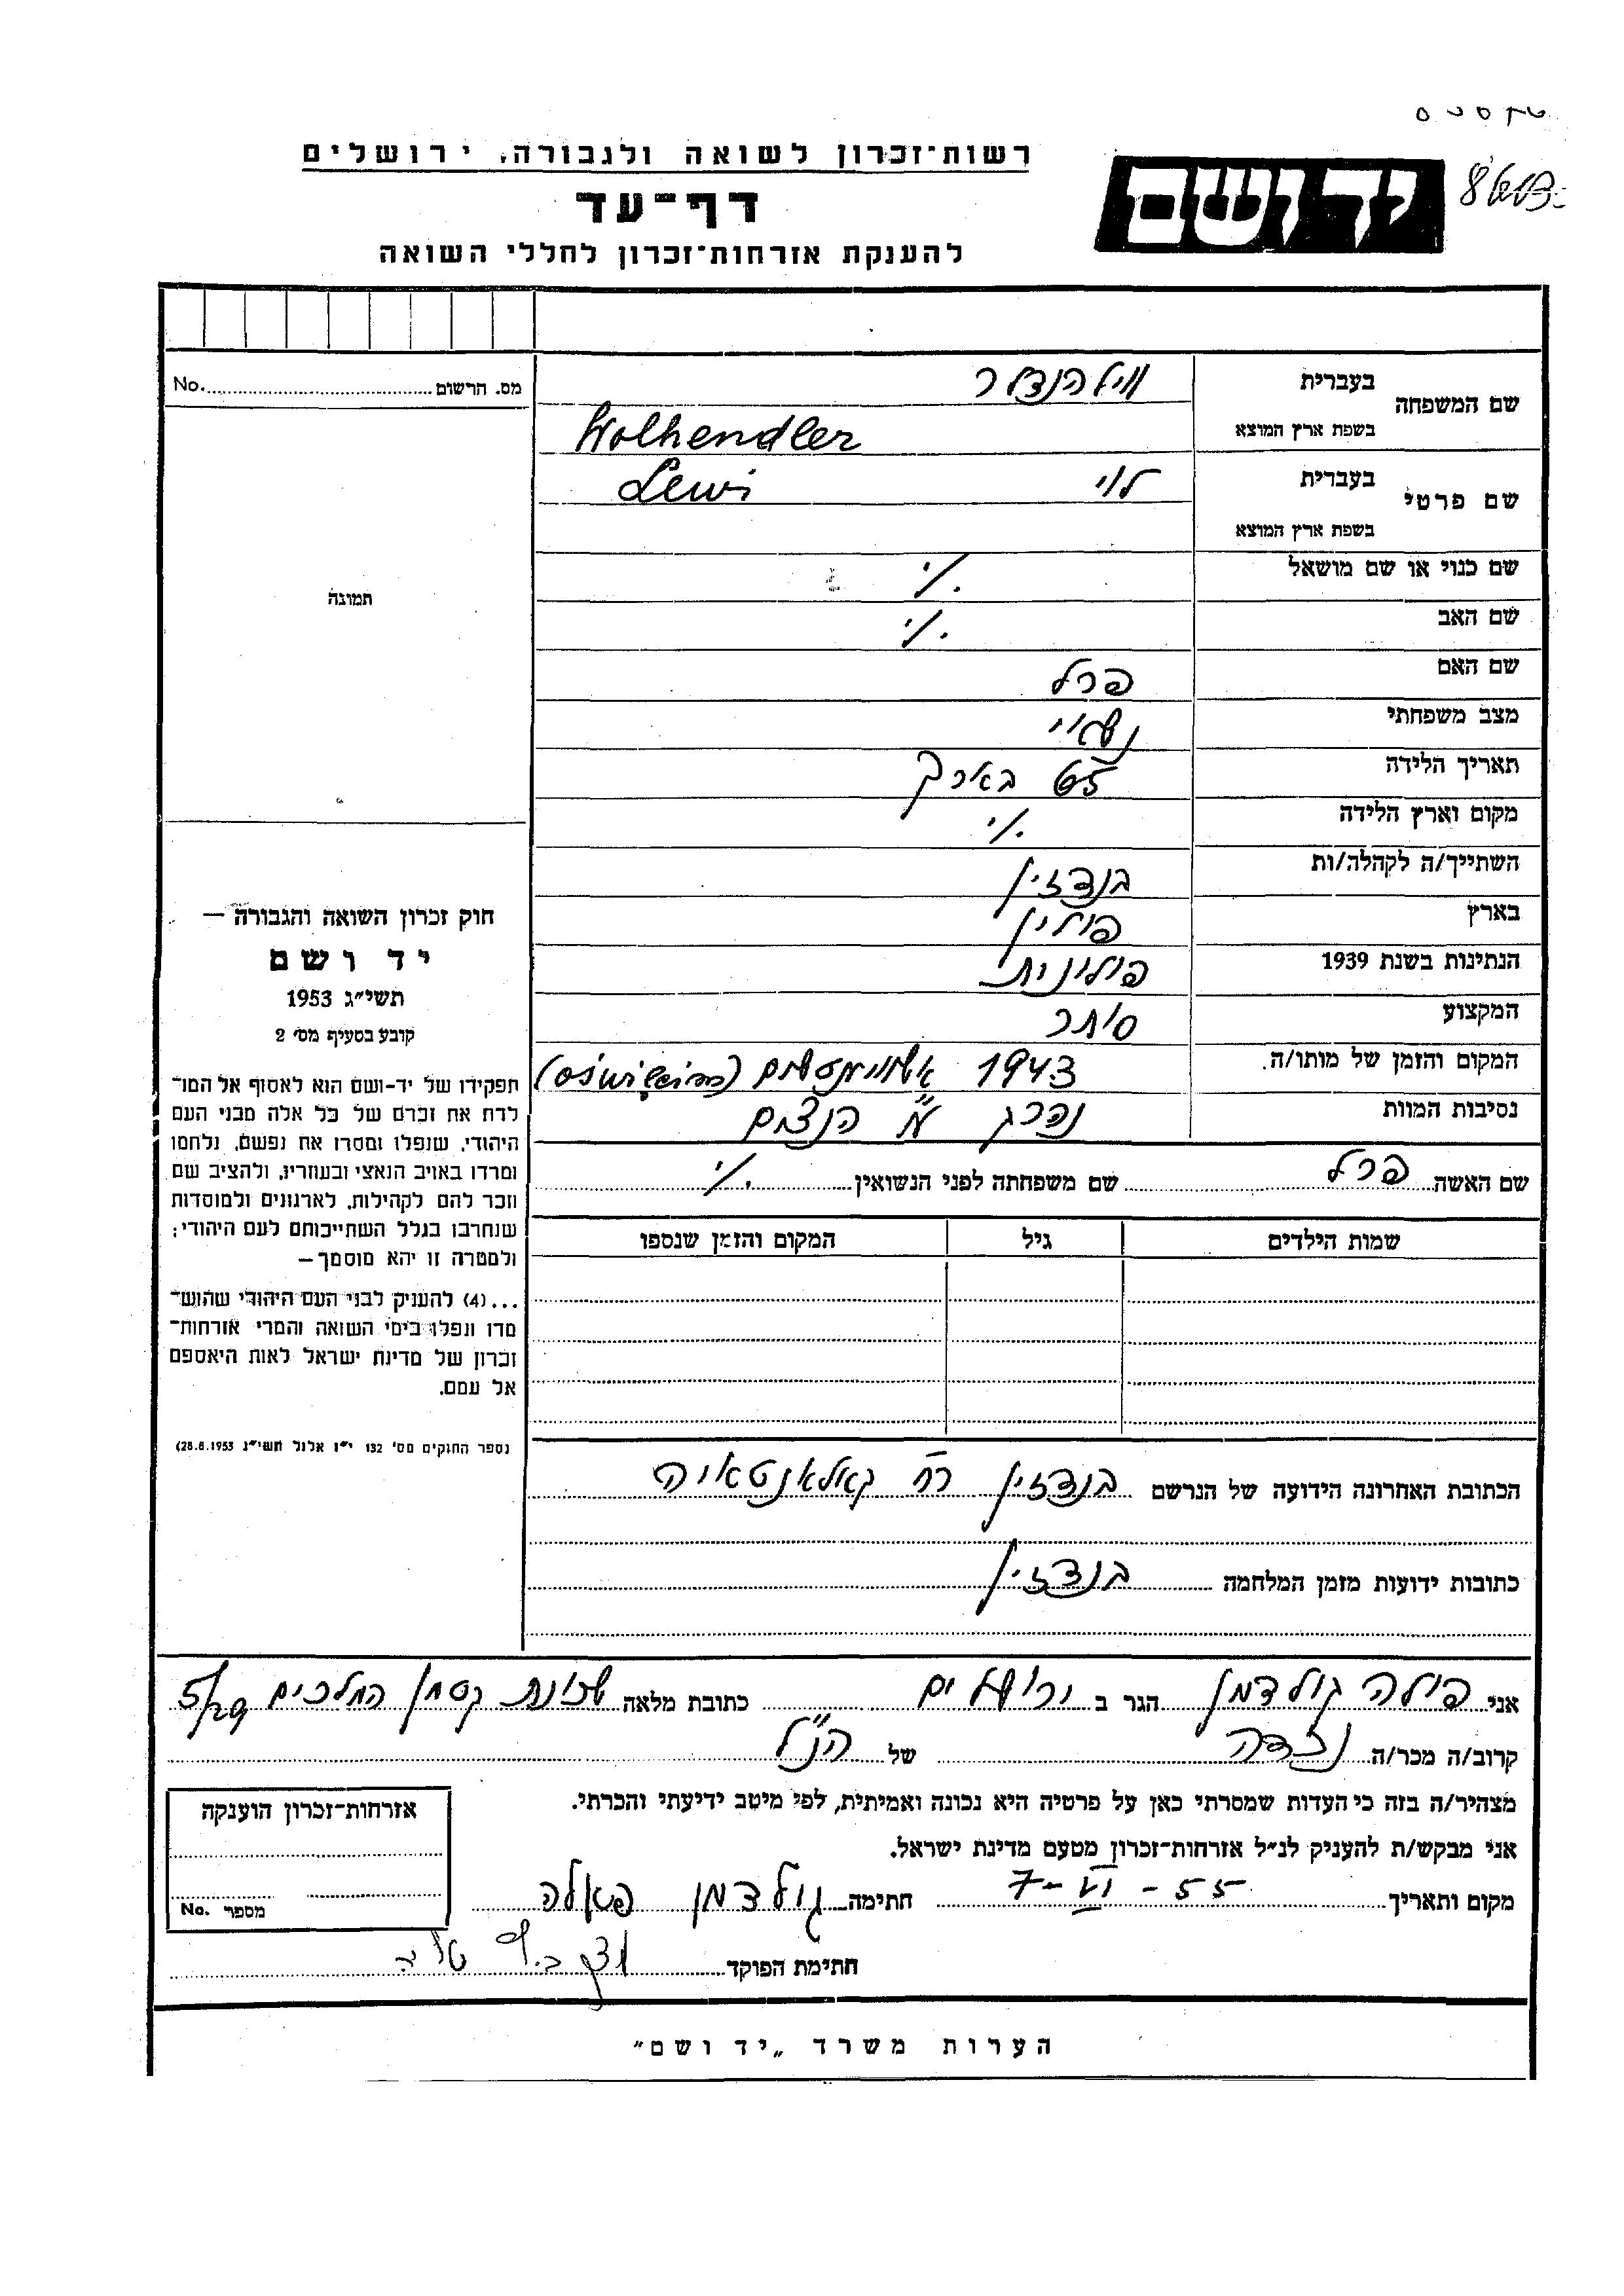 רשות־זכרון לשואה ולגבורה, ירושלים
דף־עד
להענקת אזרחות־זכרון לחללי השואה
יד ושם
מס. הרשום No.
שם המשפחה בעברית ווילהנדלר
בשפת ארץ המוצא Wolhendler
שם פרטי בעברית לוי Lewi
בשפת ארץ המוצא
שם כנוי או שם מושאל ./י
שם האב ./י
שם האם פרל
מצב משפחתי נשוי
תאריך הלידה 65 בארך
מקום וארץ הלידה ./י
השתייך/ה לקהלה/ות בנדזין
בארץ פולין
הנתינות בשנת 1939 פולונית
המקצוע סוחר
המקום והזמן של מותו/ה. 1943 (oświęcim)
נסיבות המוות נהרג ע"
שם האשה פרל שם משפחתה לפני הנשואין ./י
שמות הילדים גיל המקום והזמן שנספו
תמונה
חוק זכרון השואה והגבורה —
יד ושם
תשי״ג 1953
קובע בסעיף מס׳ 2
תפקידו של יד-ושם הוא לאסוף אל המו־
לדת את זכרם של כל אלה מבני העם
היהודי, שנפלו ומסרו את נפשם, נלחמו
ומרדו באויב הנאצי ובעוזריו, ולהציב שם
וזכר להם לקהילות, לארגונים ולמוסדות
שנחרבו בגלל השתייכותם לעם היהודי;
ולמטרה זו יהא מוסמך —
...(4) להעניק לבני העם היהודי שהוש־
מדו ונפלו בימי השואה והמרי אזרחות־
זכרון של מדינת ישראל לאות היאספם
אל עמם.
(ספר החוקים מס׳ 132 י״ז אלול תשי״ג 28.8.1953)
הכתובת האחרונה הידועה של הנרשם בנדזין רח'
כתובות ידועות מזמן המלחמה בנדזין
אני פולה גולדמן הגר ב ירושלים כתובת מלאה שכונת
קרוב/ה מכר/ה נכדה של הנ"ל
מצהיר/ה בזה כי העדות שמסרתי כאן על פרטיה היא נכונה ואמיתית, לפי מיטב ידיעתי והכרתי.
אני מבקש/ת להעניק לנ״ל אזרחות־זכרון מטעם מדינת ישראל.
מקום ותאריך 7-VI-55 חתימה גולדמן פאלה
חתימת הפוקד
אזרחות־זכרון הוענקה
מספר No.
הערות משרד „יד ושם״